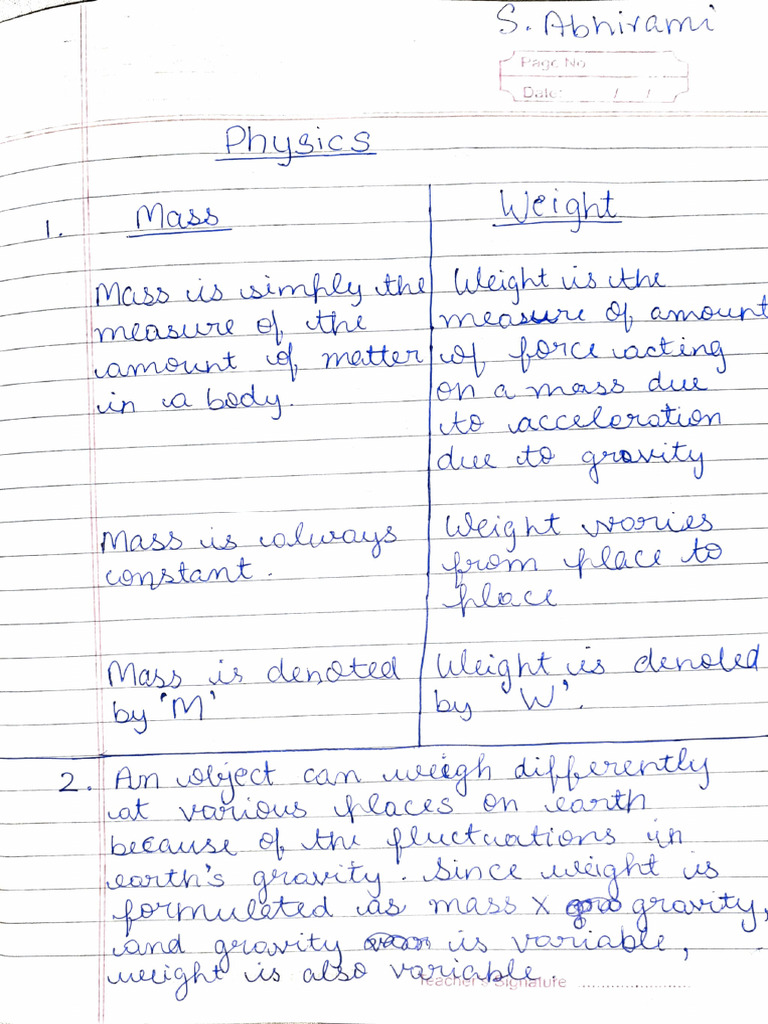 S. Abhirami
Page No
Date: / /
Physics
1. Mass
Mass is simply the
measure of the
amount of matter
in a body.
Mass is always
constant.
Mass is denoted
by 'M'
Weight
Weight is the
measure of amount
of force acting
on a mass due
to acceleration
due to gravity
Weight varies
from place to
place
Weight is denoted
by 'W'.
2. An object can weigh differently
at various places on earth
because of the fluctuations in
earth's gravity. Since weight is
formulated as mass x gravity,
and gravity is variable,
weight is also variable.
Teacher's Signature ....................